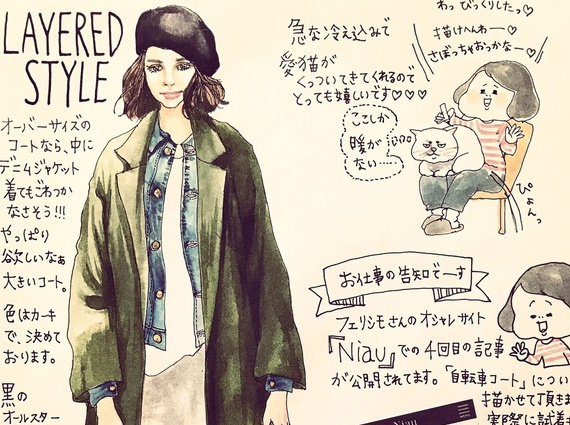 LAYERED
STYLE
オーバーサイズの
コートなら、中に
デニムジャケット
着てもごわっか
なさそう!!!
やっぱり
欲しいなぁ
大きいコート。
色はカーキ
で、決めて
おります。
黒の
オールスター
急な冷え込みで
愛猫が
くっついてきてくれるので
とっても嬉しいです♡♡♡
ここしか
暖が
ない…
わっ びっくりしたっ♡
描けへんわー♡
さぼっちゃおっかなー♡
ぴょんっ
お仕事の告知でーす
フェリシモさんのオシャレサイト
『Niau』での4回目の記事
が公開されてます。「自転車コート」につい
描かせて頂きま
実際に試着
Niau